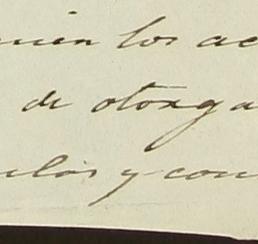 quien los ac
de otorga
ulos y con